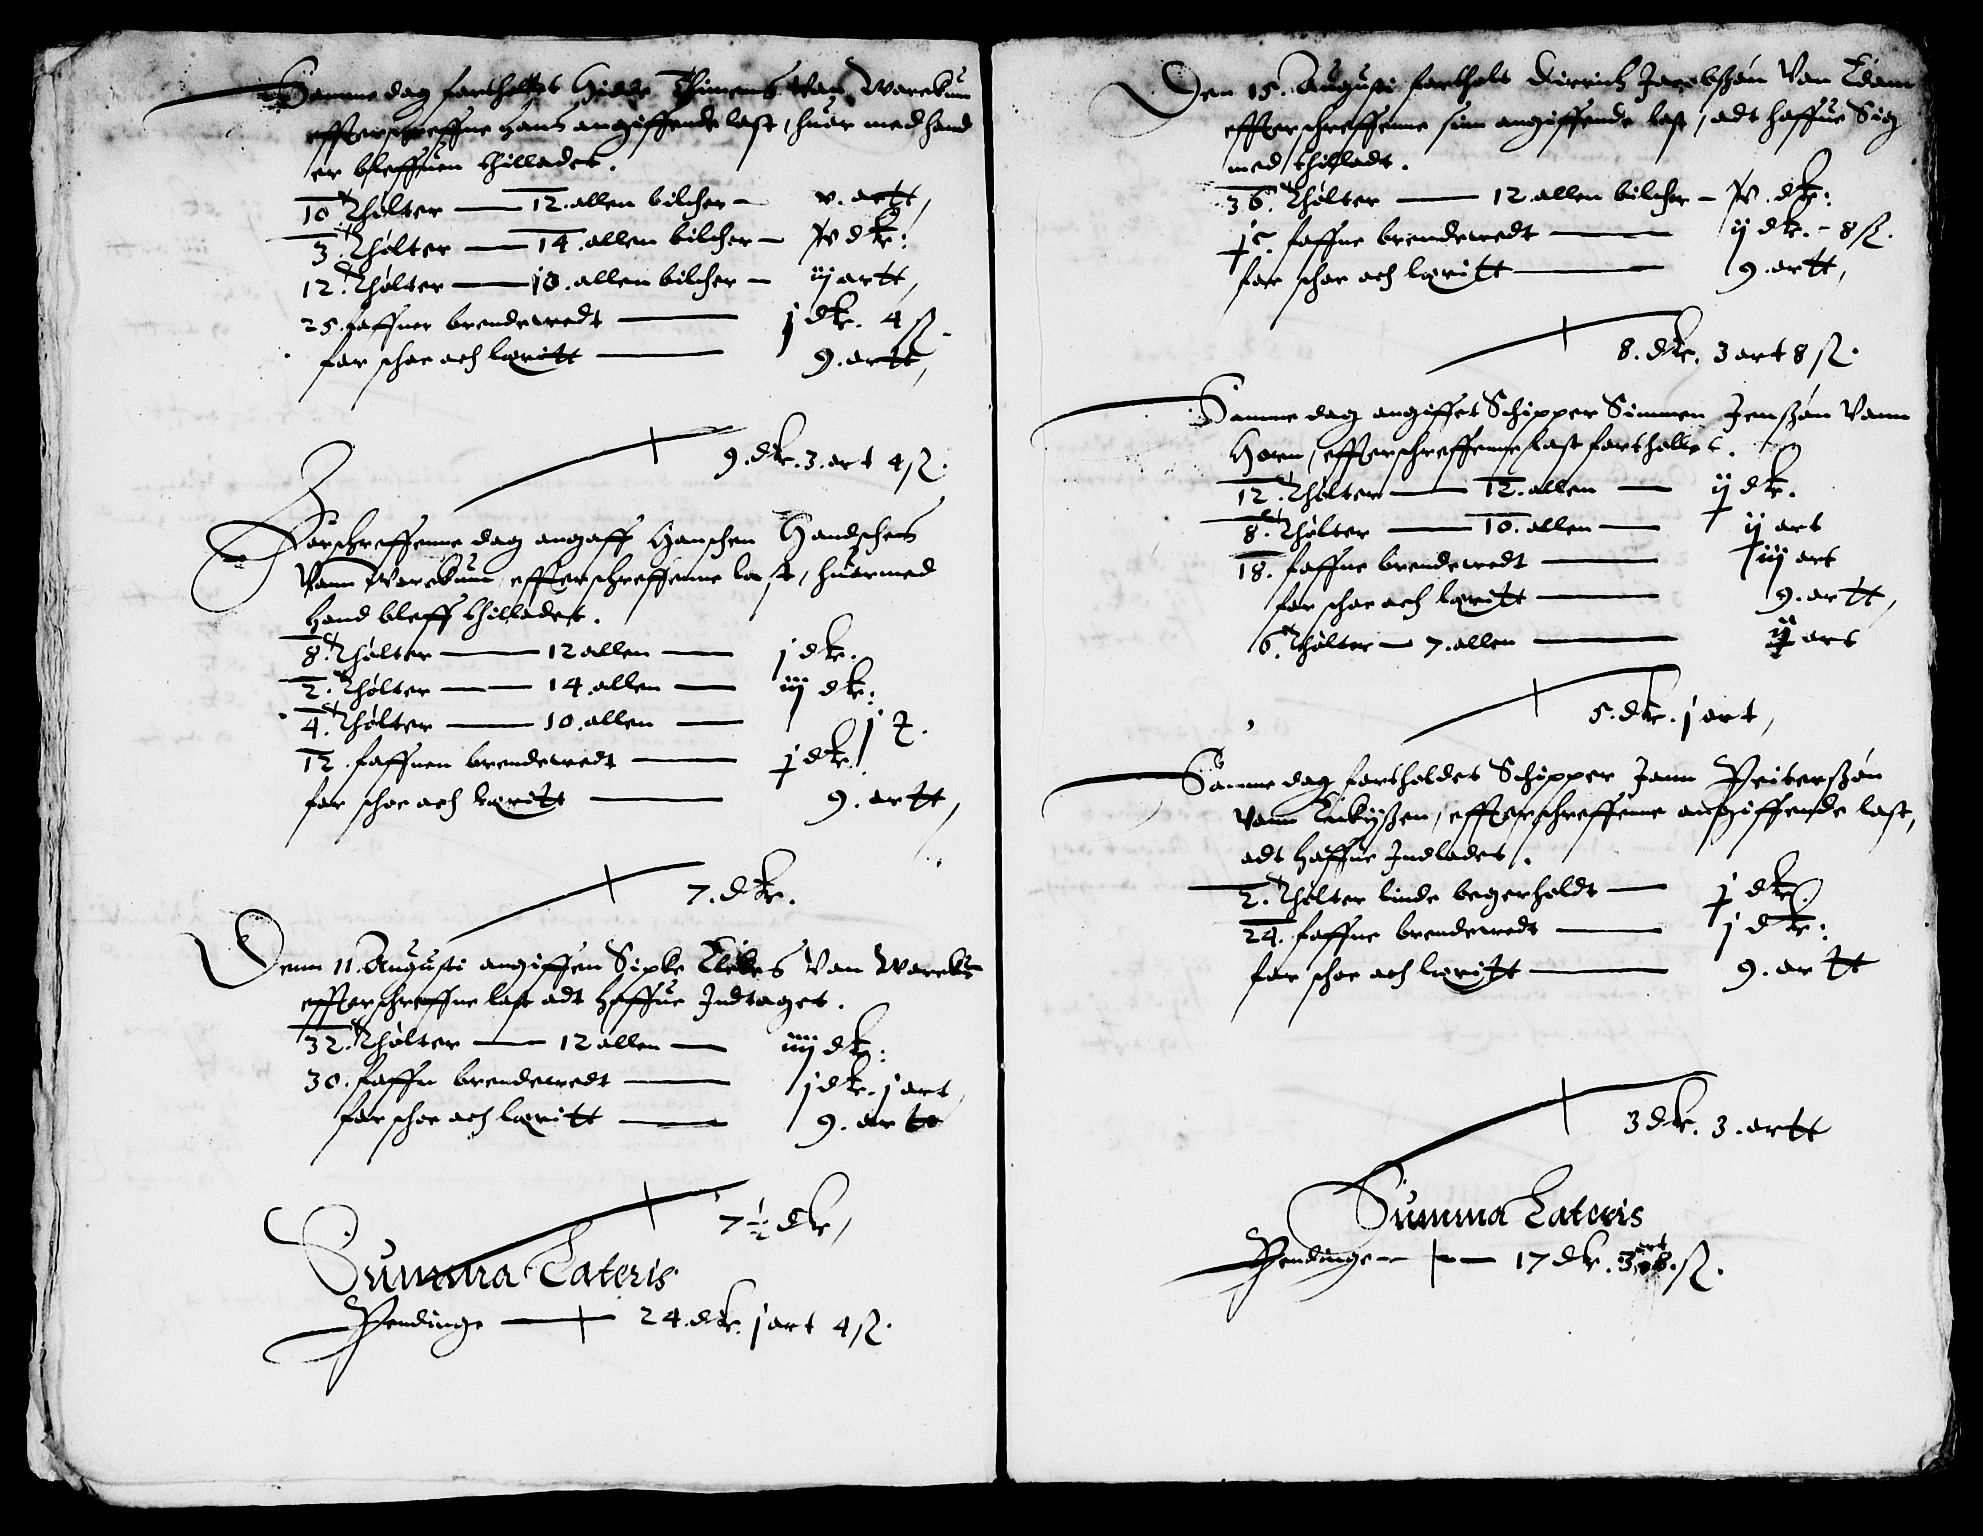 Samme dag fortholtes Hidde Thimens Van Warckum
effterschreffne hans angiffende last, huor med hand
er bleffuen thilladet.
10. Thølter — 12. allen bilcher — v. ortt,
3. Thølter — 14. allen bilcher — dlr:
12. Thølter — 10. allen bilcher — iij ortt,
25. faffner brendewedt — j dlr. 4 ß.
for schoe och lqvitt — 9. ortt,
9. dlr. 3. ort 4 ß.
Forschreffenne dag angaff Hanschen Handsches
Vann Warckum, effterschreffenne last, huormed
hand bleff thilladet.
8. Thølter — 12 allen — j dlr.
2. Thølter — 14. allen — iij dlr:
4. Thølter — 10. allen — j
12. faffnen brendewedt — j dlr.
for schoe och lqvitt — 9. ortt,
7. dlr.
Denn 11. Augusti angiffen Sipke Van Warckum
effterschreffne last adt haffue Indtaget.
32. Thølter — 12 allen — iiij dlr:
30. faffn brendewedt — j dlr. j ort
for schoe och lqvitt — 9. ortt
7 ½ dlr,
Summa Lateris
Pendinge — 24. dlr. j ort 4 ß.
Den 15. Augusti fortholt Dirrich Jacobßøn Van Edam
effterschreffenne sinn angiffende last, adt haffue Sig
med thilladt.
36. Thølter — 12. allen bilcher — dlr:
jc. faffne brendewedt — ij dlr. - 8 ß.
for schoe och lqvitt — 9. ortt,
8. dlr. 3 ort 8 ß.
Samme dag angiffet Schipper Simmen Jenßøn Vann
Horn, effterschreffenne last fortholtet.
12. Thølter — 12. allen — ij dlr.
8. Thølter — 10. allen — ij ort
18. faffne brendewedt — iij ort
for schoe och lqvitt — 9. ortt,
6. Thølter — 7. allen — ij ort
5. dlr. j ort,
Samme dag fortholdet Schipper Jann Peiterßøn
Vann Enkijßen, effterschreffenne angiffende last,
adt haffue Indladet.
2. Thølter linde begerholdt — j dlr.
24. faffne brendewedt — j dlr:
for schoe och lqvitt — 9. ortt
3 dlr. 3. ortt
Summa Lateris
Pendinge — 17 dlr. 3 ort 8. ß.